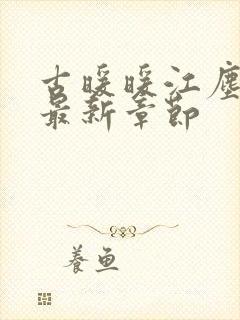 古暖暖江塵
最新章節
養魚